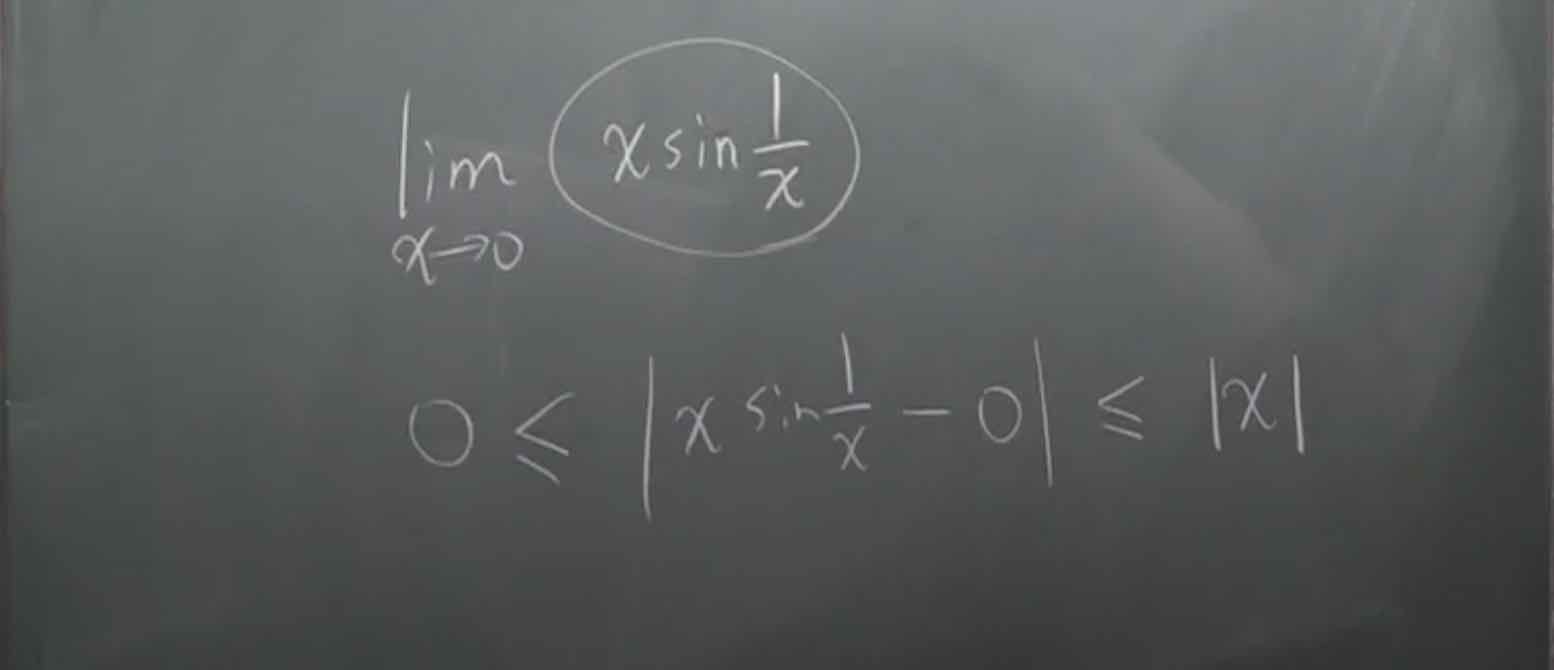 lim x sin 1/x
x→0
0 ≤ |x sin 1/x − 0| ≤ |x|